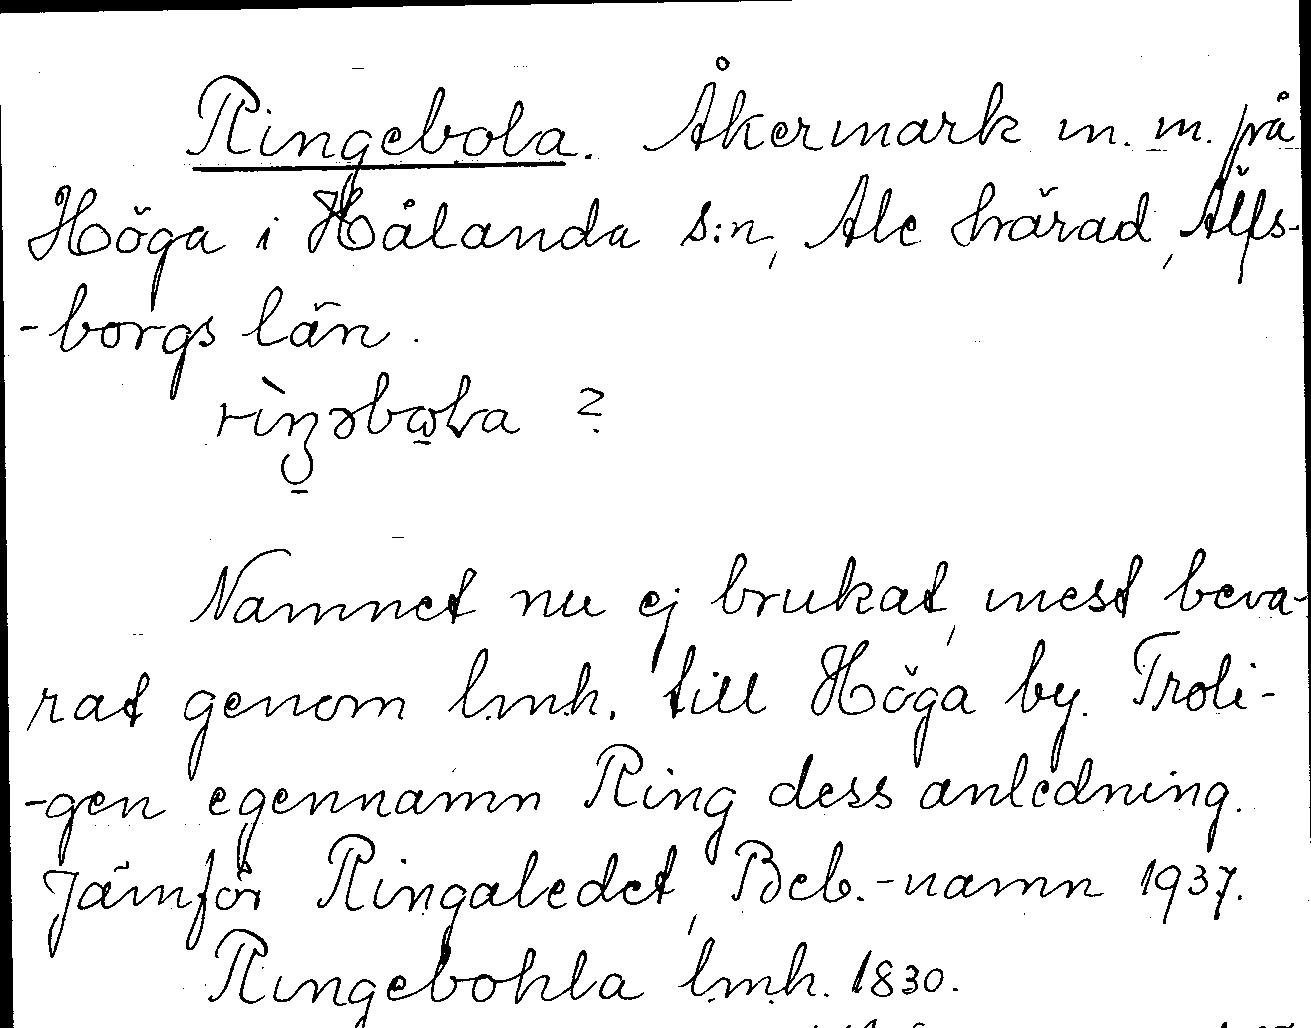 Ringebola. Åkermark m. m. på
Höga i Hålanda s:n, Ale härad, Älfs-
-borgs län.
rìŋəbωla ?
Namnet nu ej brukat, mest beva-
rat genom lmh. till Höga by. Troli-
-gen egennamn Ring dess anledning.
Jämför Ringaledet, Beb.-namn 1937.
Ringebohla lmh. 1830.